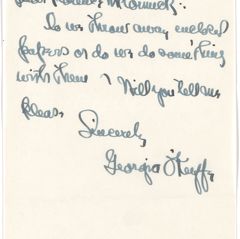 Do we throw away enclosed
papers or do we do something
with them? Will you tell me
please.
Sincerely,
Georgia O'Keeffe